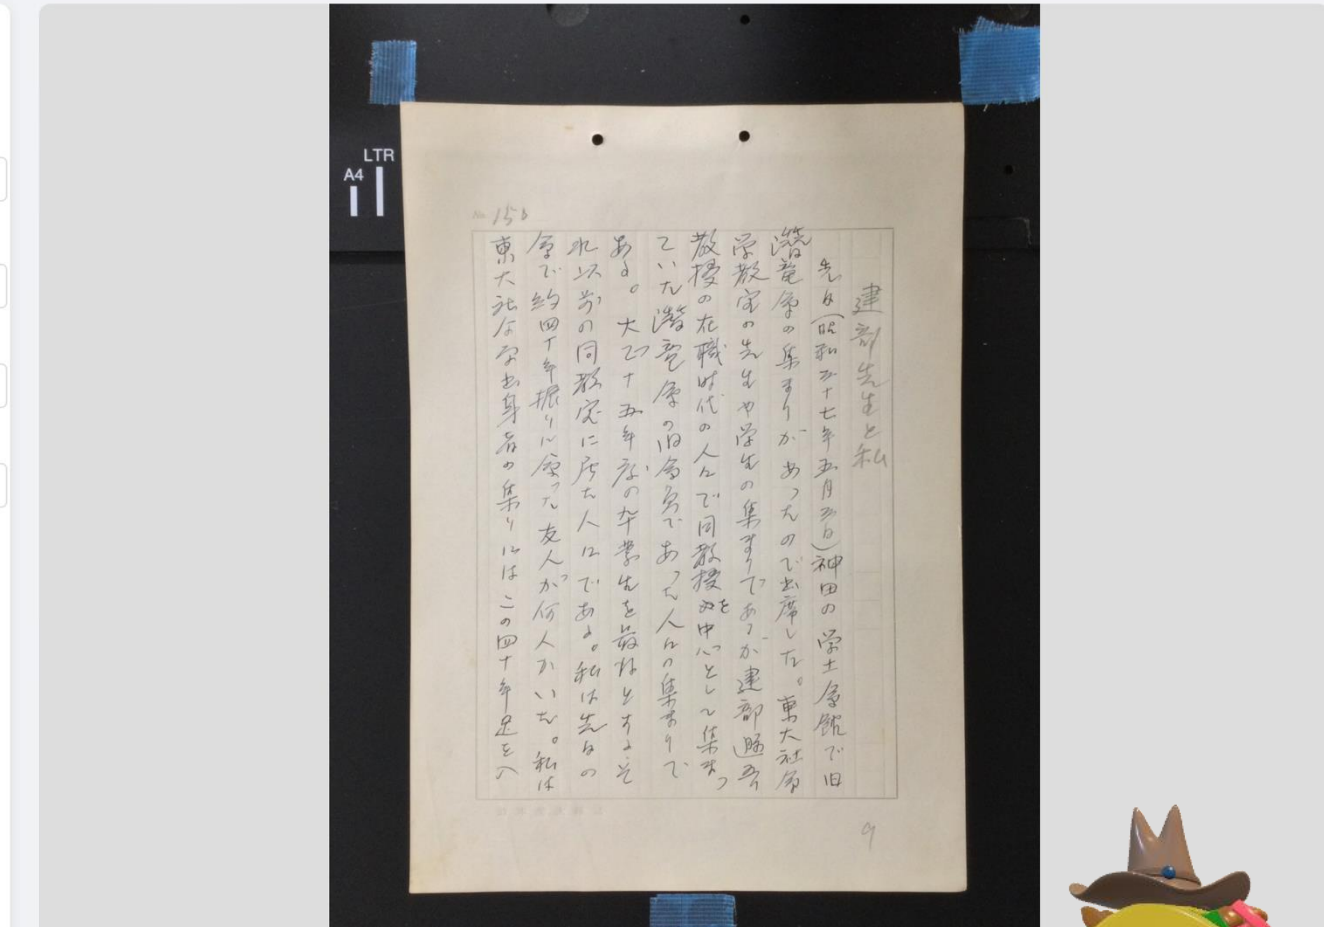 LTR
A4
No. 156
建部先生と私
先日(昭和三十七年五月三日)神田の学士会館で旧
潜竜会の集まりがあったので出席した。東大社会
学教室の先生や学生の集まりであるが建部遯吾
教授の在職時代の人々で同教授を中心として集まっ
ていた潜竜会の旧会員であった人々の集まりで
ある。大正十五年度の卒業生を最終とするそ
れ以前の同教室に居た人々である。私は先日の
会で約四十年振りに会った友人が何人かいた。私は
東大社会学出身者の集りにはこの四十年足を入
9